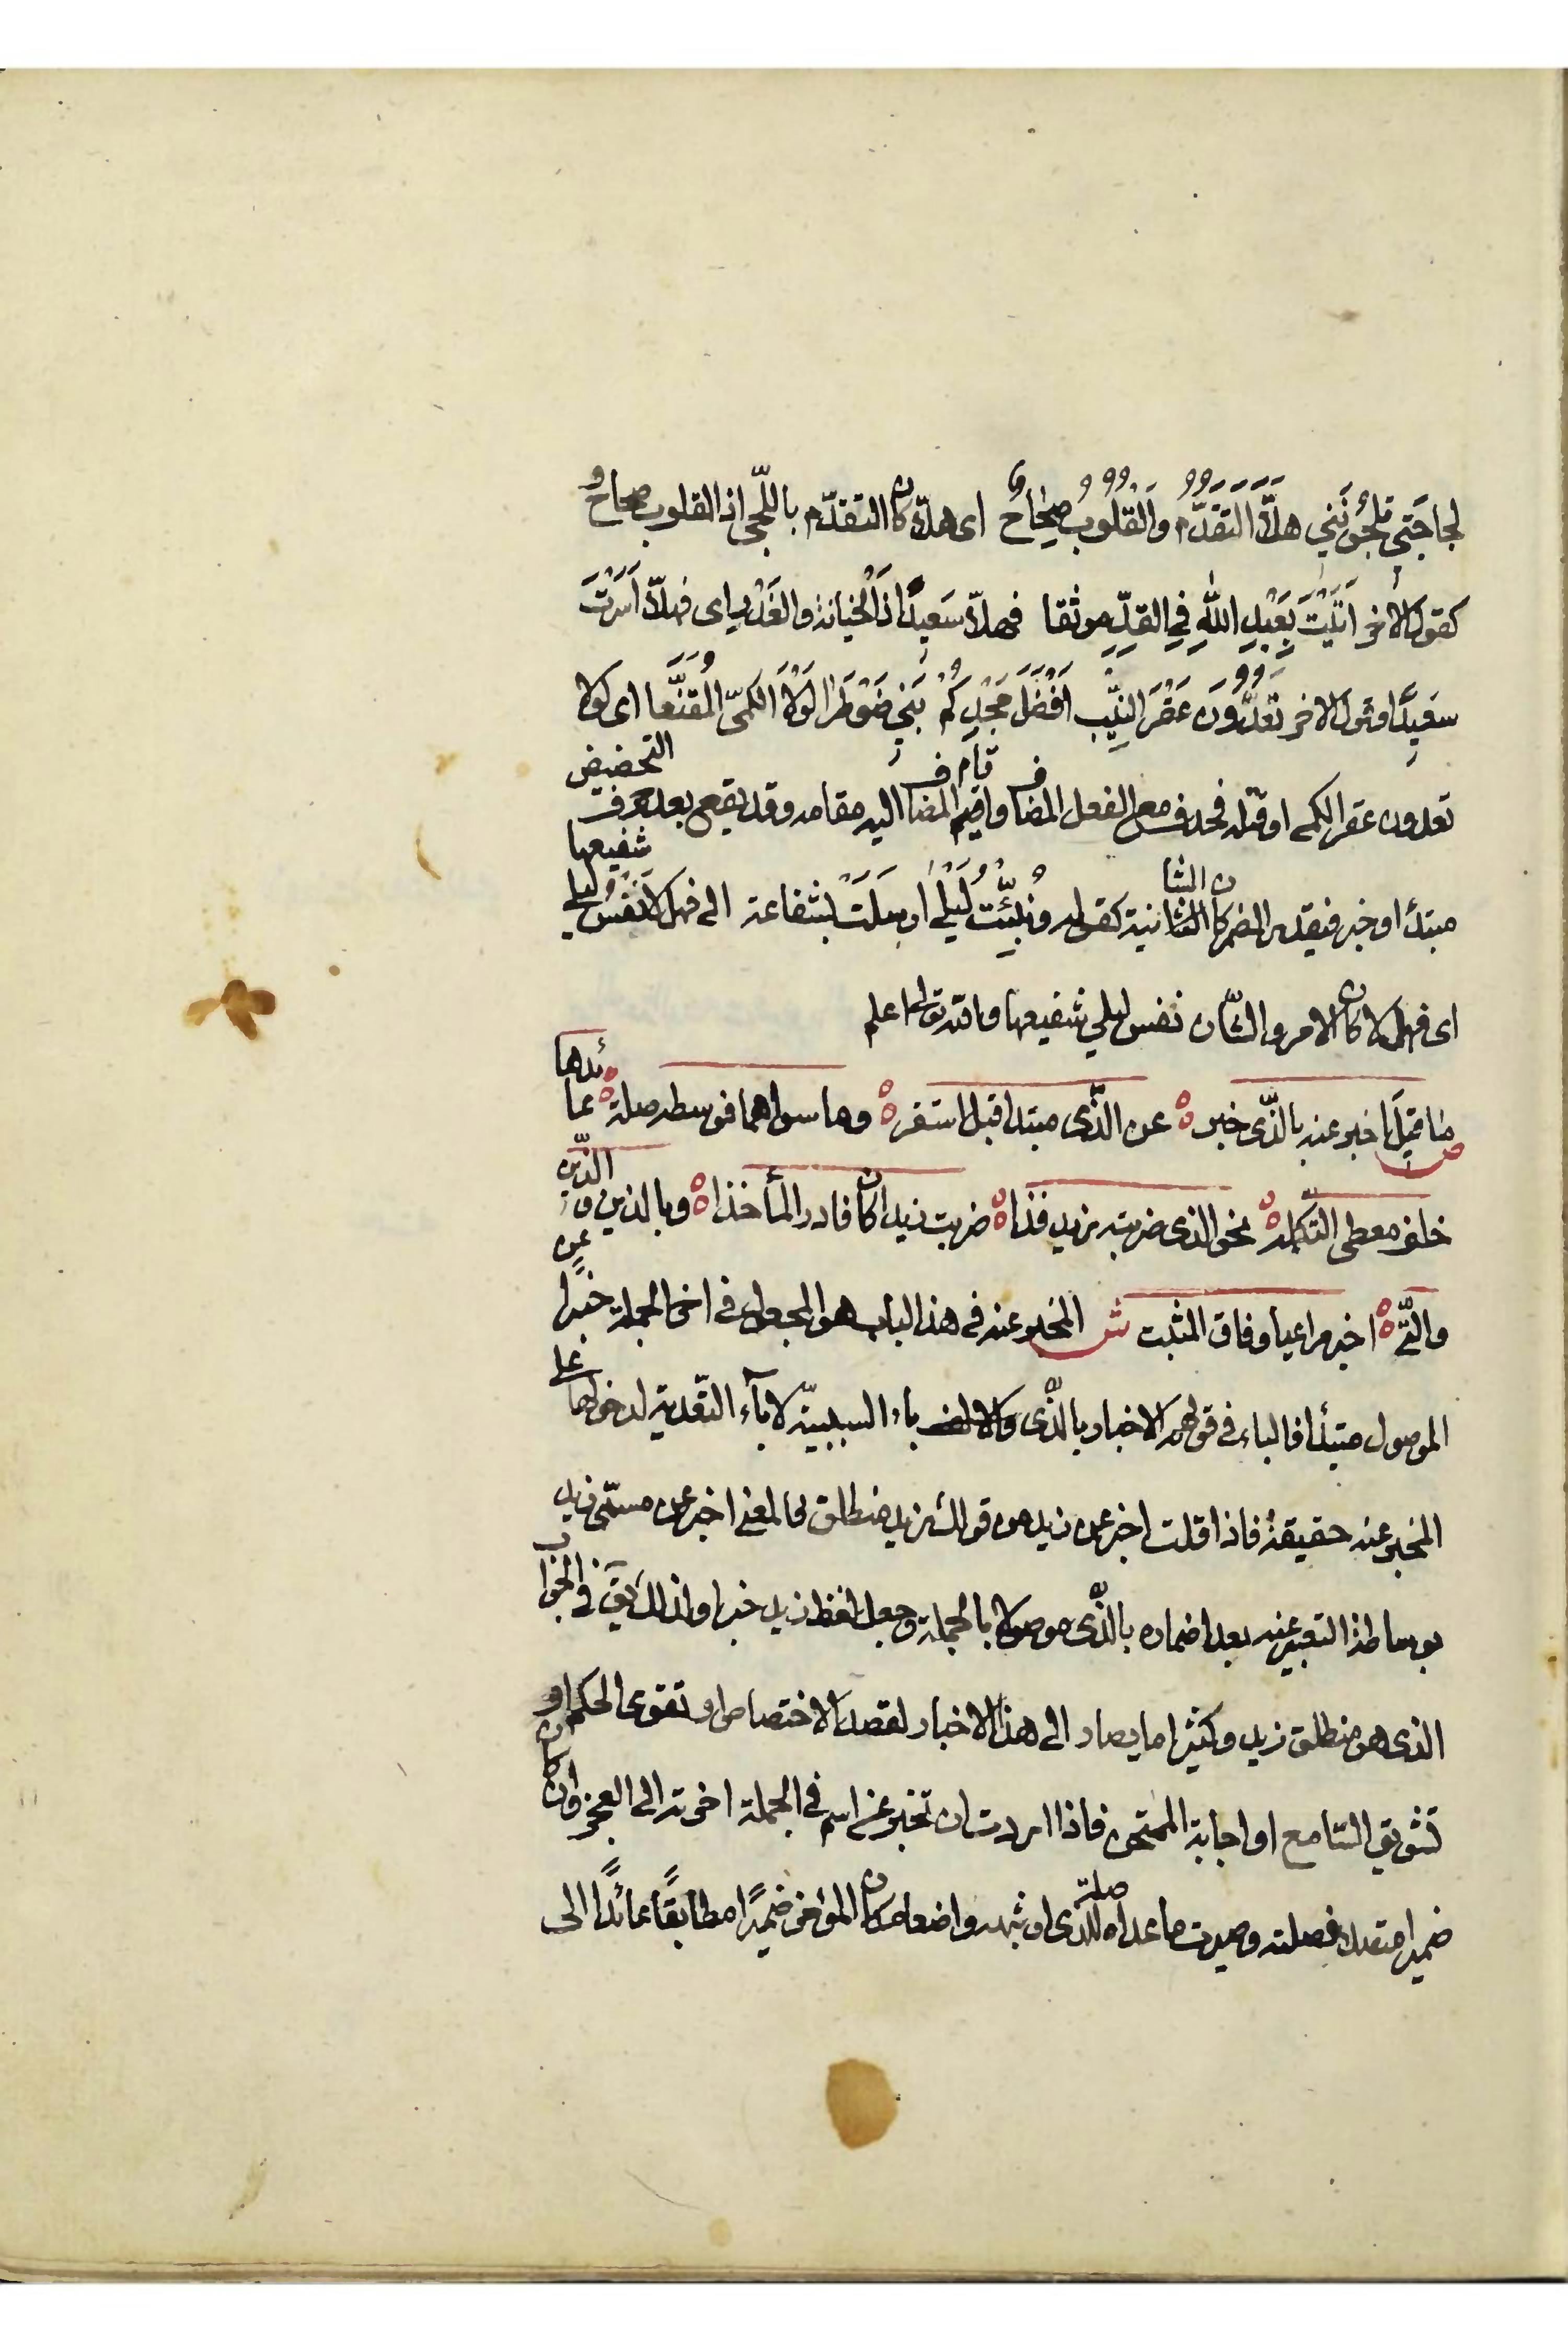 لجاجتي تلجوننني هلّا التقدّم والقلوب صحاح اى هلّا كان التقدّم باللّجى اذ القلوب صحاح و
كقول الآخر اتيت بعبد الله في القدّ موثقا فهلّا سعيدا ذا الخيانة والغدر اى فهلّا اسرت
سعيدًا وقول الاخر تعدّون عقر النيب افضل مجدكم بنى ضوطرا لولا الكمىّ المقنّعا اى لولا
تعدون عقر الكمى او قتله فحذف مع الفعل المضاف واقيم المضاف اليه مقامه وقد يقع بعد حرف التحضيض
مبتدأ وخبر فيقدر المضمر كان الشانية كقوله ونبّئت ليلى ارسلت بشفاعة الى فهلا نفس ليلى شفيعها
اى فهلا كان الامر والشّان نفس ليلى شفيعها والله تعالى اعلم
ص ما قيل اخبر عنه بالذّى خبر ه عن الذّى مبتدا قبل استقر ه وما سواهما فوسطه صلة ه عائدها
خلف معطى التكمله ه نحو الذى ضربته زيد فذا ه ضربت زيدا كان فادر المأخذا ه وبالذين والّذين
والّتى ه اخبر مراعيا وفاق المثبت ش المخبر عنه فى هذا الباب هو المجعول فى اخر الجملة خبرا عن
الموصول مبتدأ فالباء فى قولهم الاخبار بالذّى باء السببيّة لا باء التّعدية لدخولها على
المخبر عنه حقيقة فاذا قلت اخبر عن زيد من قولك زيد منطلق فالمعنى اخبر عن مسمّى زيد
بوساطة التعبير عنه بعد اضماره بالذّى موصولا بالجملة وجعل لفظ زيد خبرا ولذلك يق فى الجواب
الذى هو منطلق زيد وكثيرا ما يصار الى هذا الاخبار لقصد الاختصاص او تقوى الحكم او
تشويق السّامع او اجابة الممتحن فاذا اردت ان تخبر عن اسم فى الجملة اخرته الى العجز وان كان
ضميرا متصلا فصلته وصيرت ما عداه صلة للذى او شبهه واضعا مكان المؤخر ضميرًا مطابقًا عائدًا الى